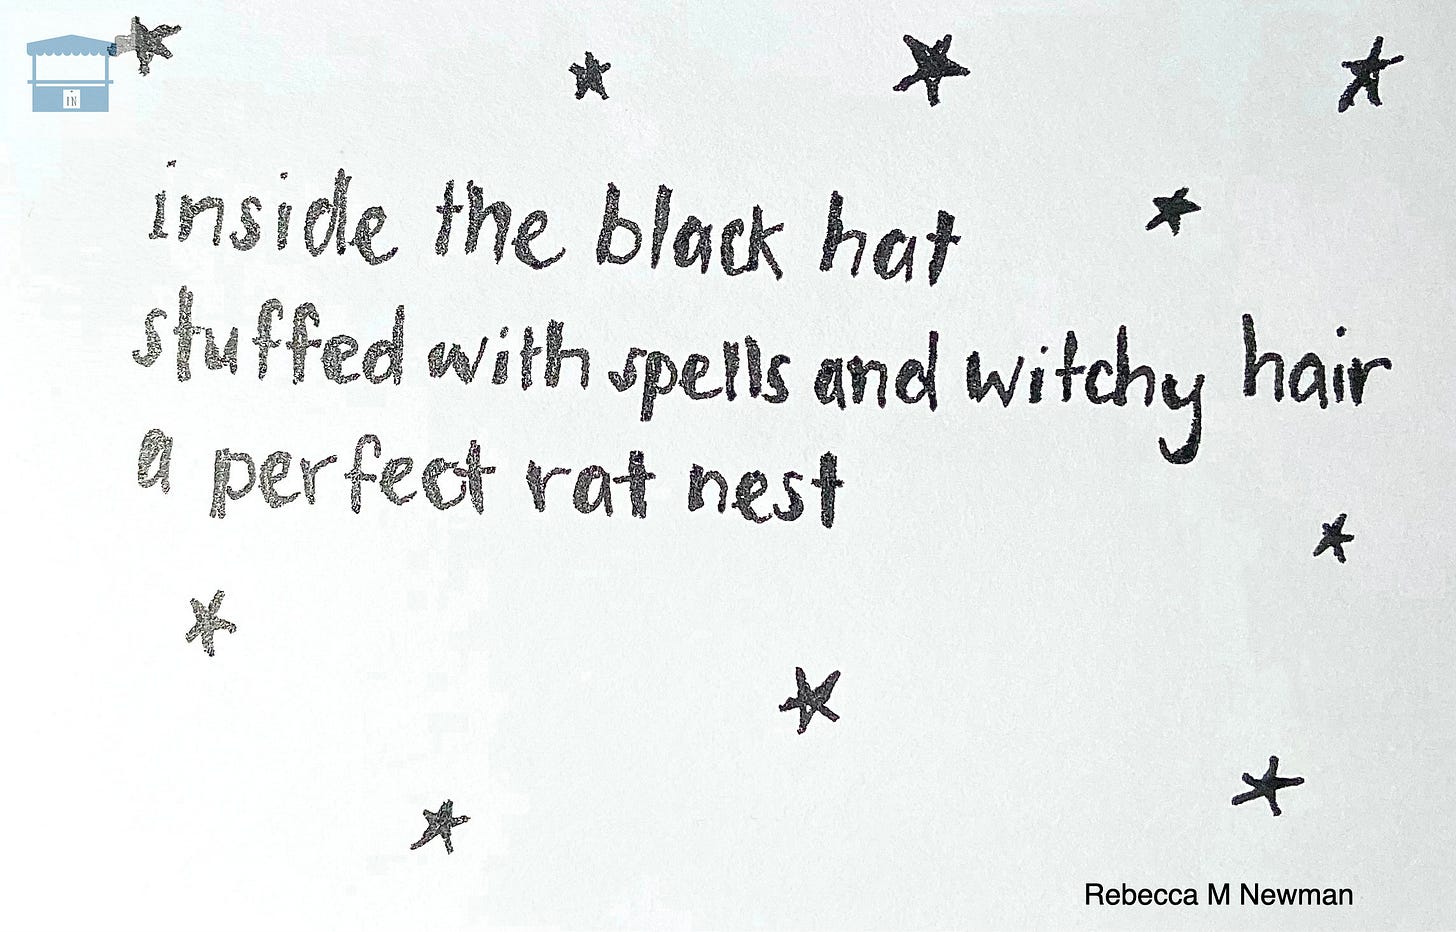 IN
inside the black hat
stuffed with spells and witchy hair
a perfect rat nest
Rebecca M Newman